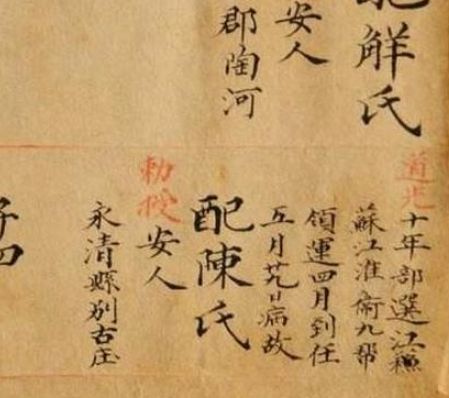 觧氏
安人
郡陶河
道光十年部選江
蘇江淮衛九帮
領運四月到任
五月廿九日病故
配陳氏
勅授安人
永清縣別古庄
子四